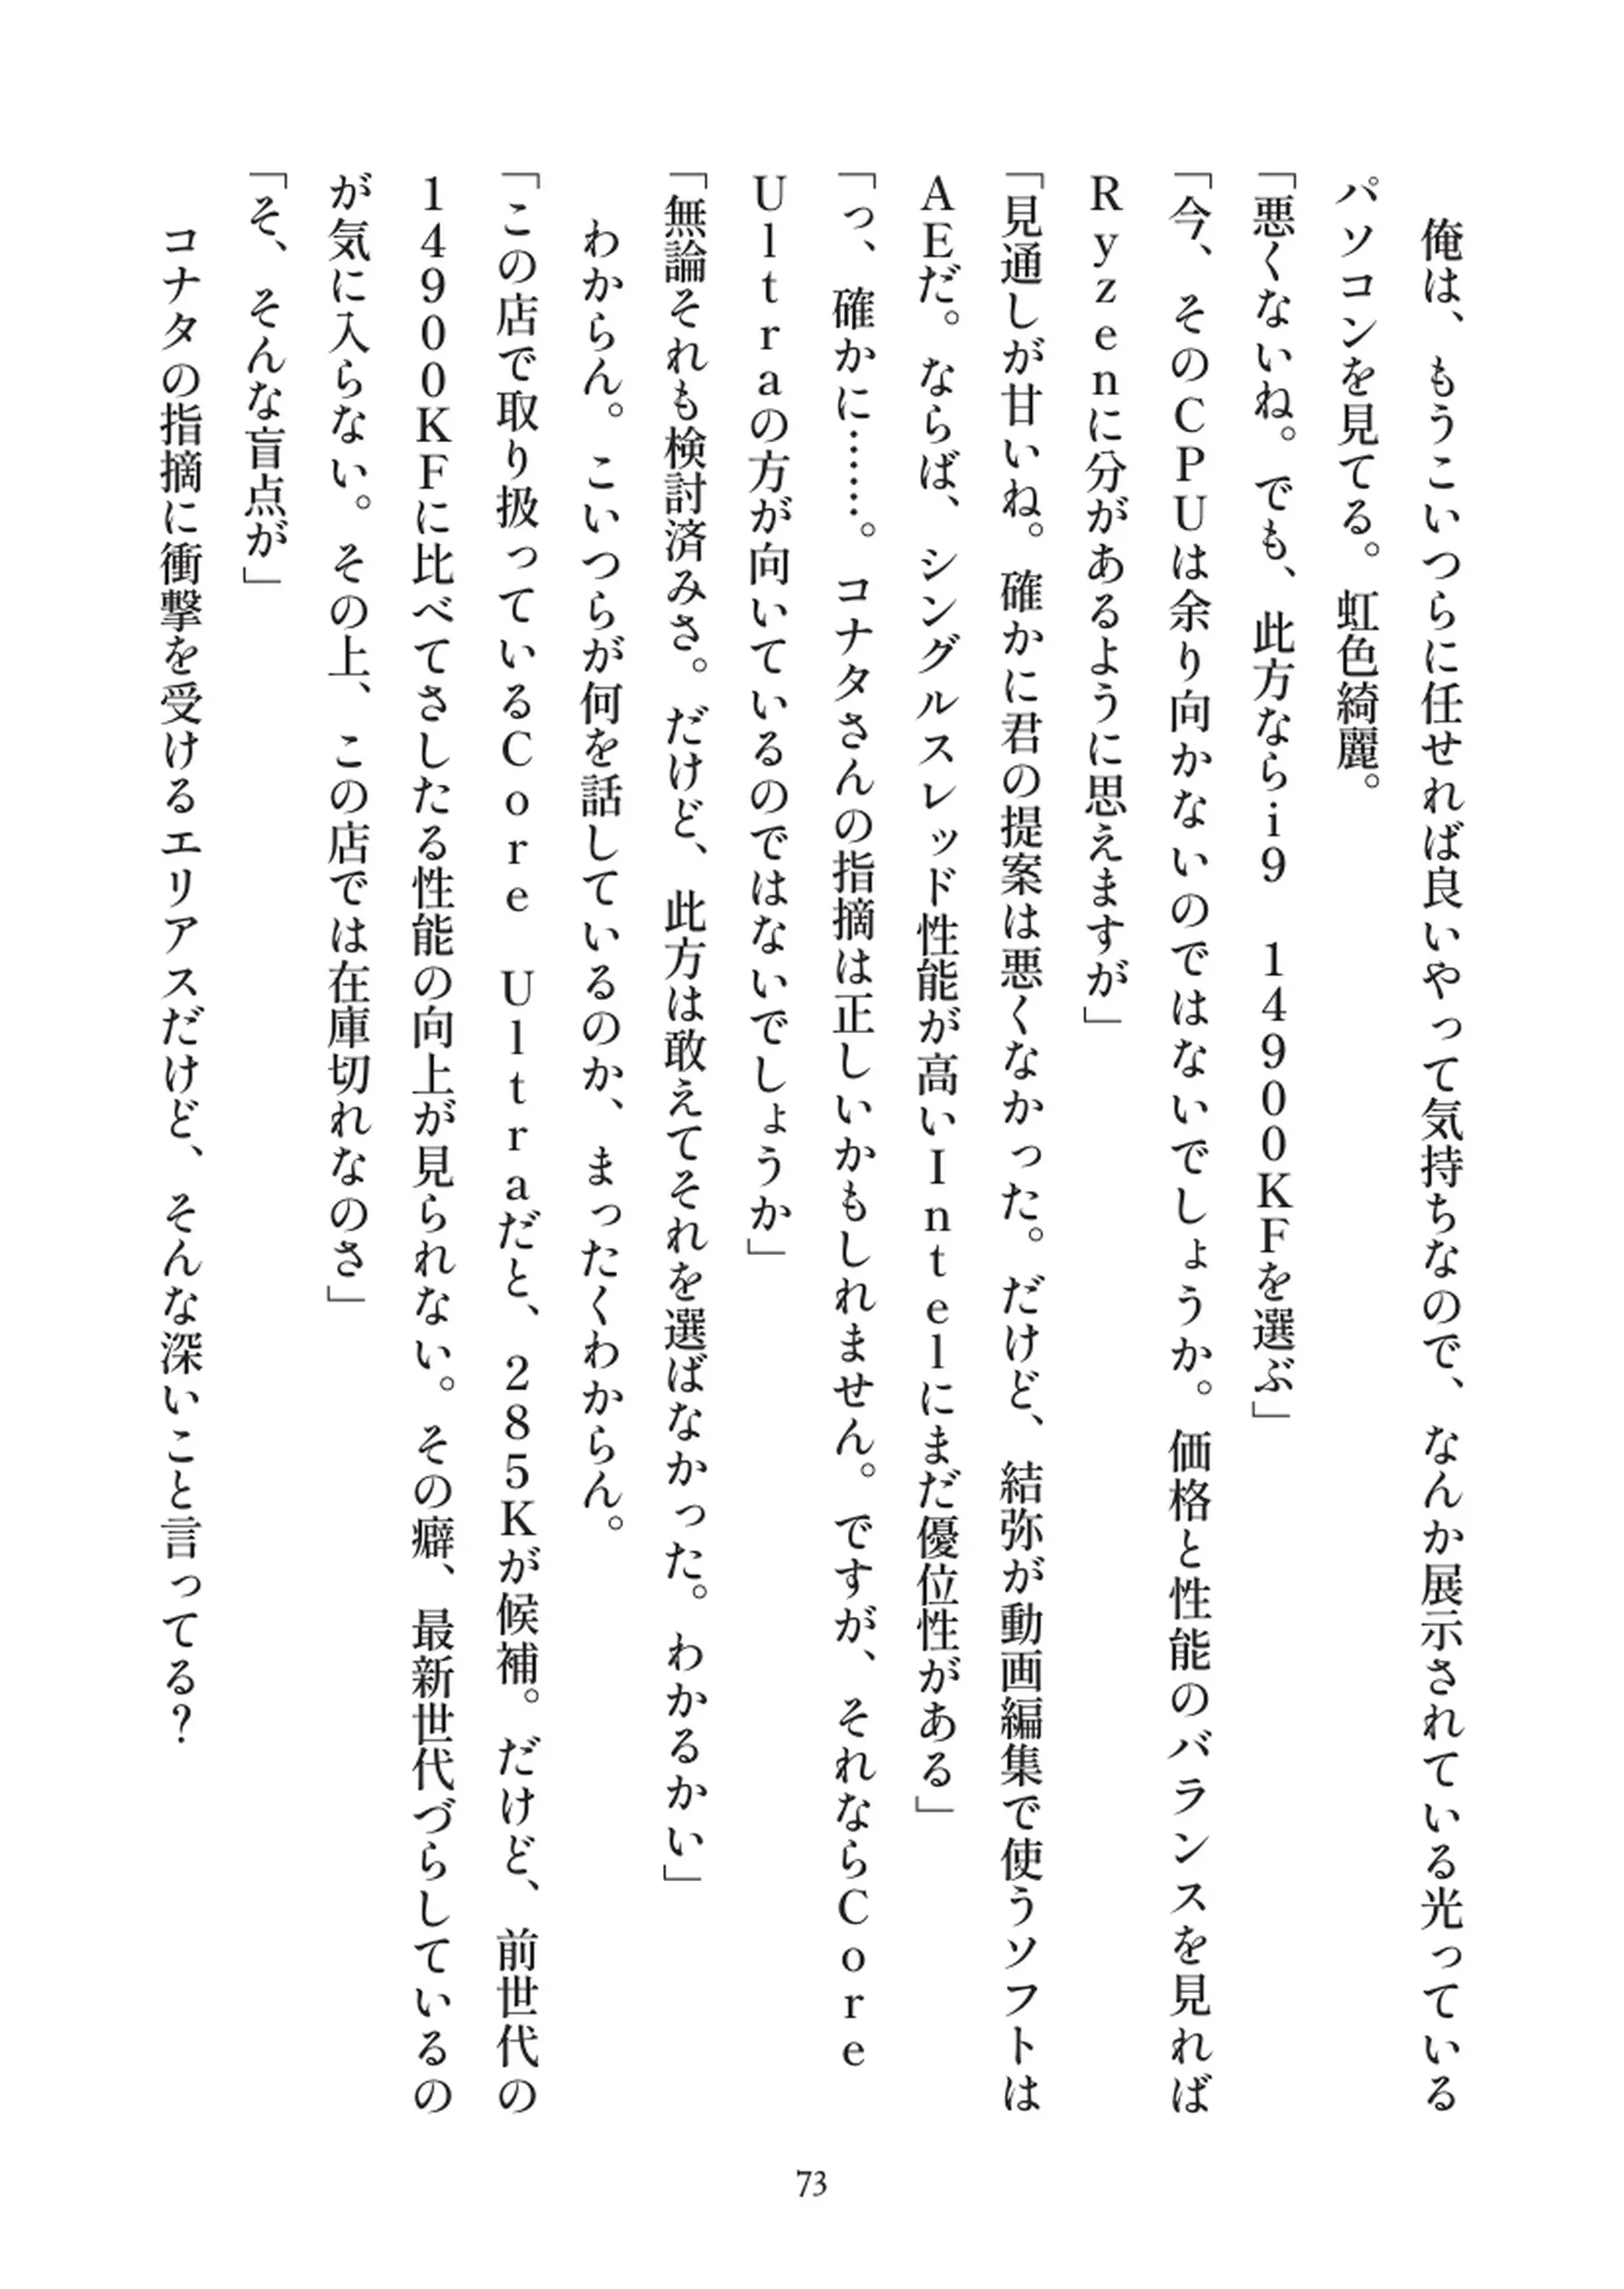 俺は、もうこいつらに任せれば良いやって気持ちなので、なんか展示されている光っている
パソコンを見てる。虹色綺麗。
「悪くないね。でも、此方ならi9　14900KFを選ぶ」
「今、そのCPUは余り向かないのではないでしょうか。価格と性能のバランスを見れば
Ryzenに分があるように思えますが」
「見通しが甘いね。確かに君の提案は悪くなかった。だけど、結弥が動画編集で使うソフトは
AEだ。ならば、シングルスレッド性能が高いIntelにまだ優位性がある」
「っ、確かに……。コナタさんの指摘は正しいかもしれません。ですが、それならCore
Ultraの方が向いているのではないでしょうか」
「無論それも検討済みさ。だけど、此方は敢えてそれを選ばなかった。わかるかい」
　わからん。こいつらが何を話しているのか、まったくわからん。
「この店で取り扱っているCore　Ultraだと、285Kが候補。だけど、前世代の
14900KFに比べてさしたる性能の向上が見られない。その癖、最新世代づらしているの
が気に入らない。その上、この店では在庫切れなのさ」
「そ、そんな盲点が」
　コナタの指摘に衝撃を受けるエリアスだけど、そんな深いこと言ってる？
73